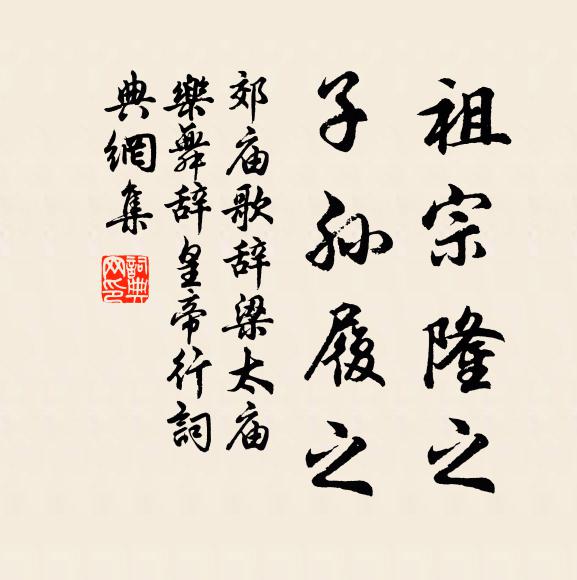 祖宗隆之
子孙履之
郊庙歌辞梁太庙
樂舞辞皇帝行詞
典網集
詞典網印